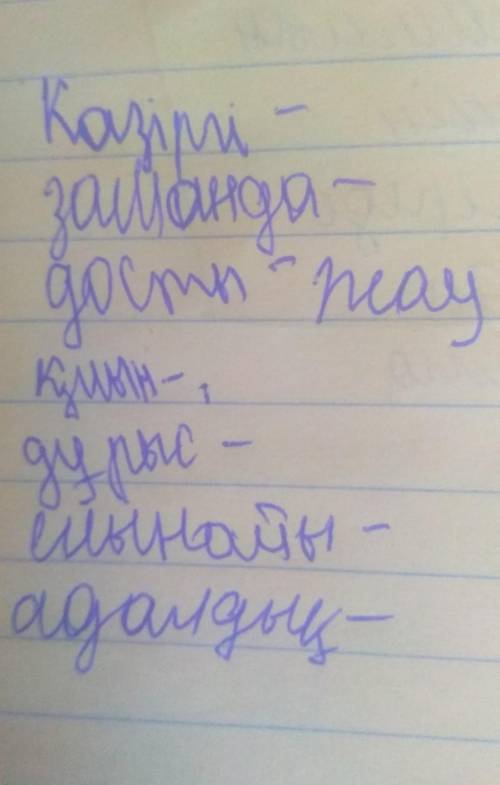 Казіргі -
заманда -
досты - жау
қиын - ,
дұрыс -
шынайы -
адалдық -